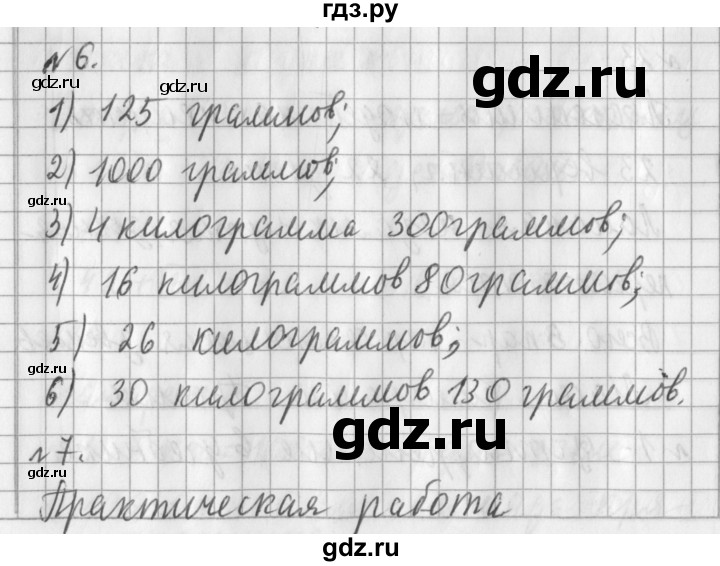 гдз.ру
№6.
gdz.ru
gdz.ru
1) 125 граммов;
2) 1000 граммов;
gdz.ru
3) 4 килограмма 300 граммов;
4) 16 килограммов 80 граммов;
5) 26 килограммов;
gdz.ru
6) 30 килограммов 130 граммов.
gdz.ru
№7.
gdz.ru
Практическая работа
gdz.ru